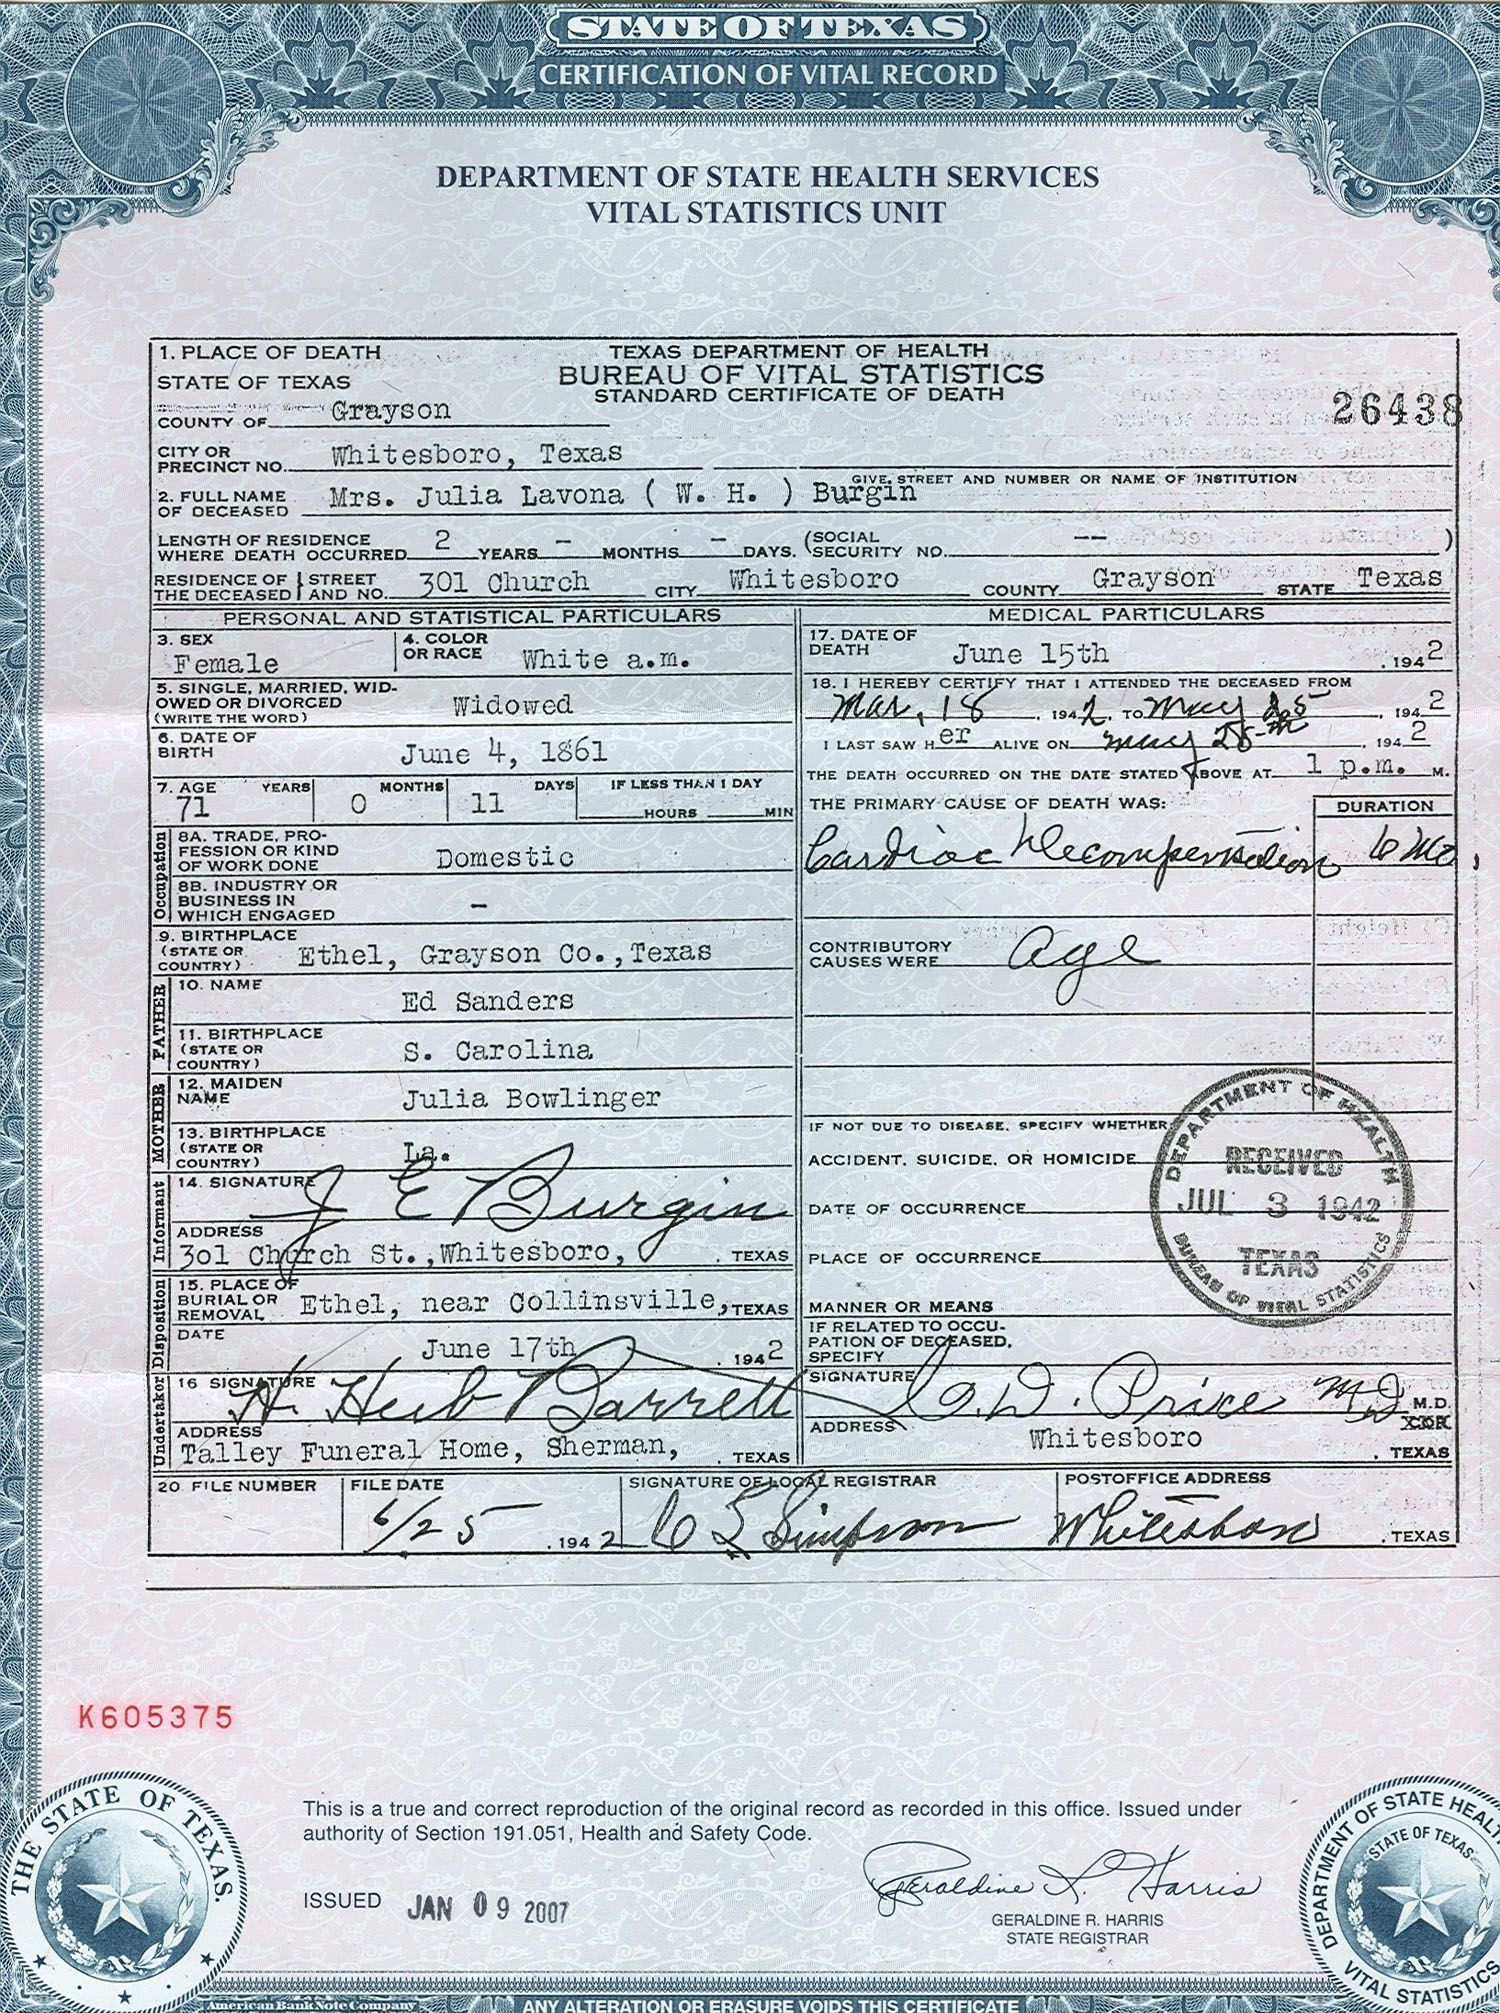 STATE OF TEXAS
CERTIFICATION OF VITAL RECORD
DEPARTMENT OF STATE HEALTH SERVICES
VITAL STATISTICS UNIT
1. PLACE OF DEATH
STATE OF TEXAS
COUNTY OF Grayson
TEXAS DEPARTMENT OF HEALTH
BUREAU OF VITAL STATISTICS
STANDARD CERTIFICATE OF DEATH
26438
CITY OR PRECINCT NO. Whitesboro, Texas
GIVE STREET AND NUMBER OR NAME OF INSTITUTION
2. FULL NAME OF DECEASED Mrs. Julia Lavona ( W. H. ) Burgin
LENGTH OF RESIDENCE WHERE DEATH OCCURRED 2 YEARS - MONTHS - DAYS. (SOCIAL SECURITY NO. -- )
RESIDENCE OF THE DECEASED STREET AND NO. 301 Church CITY Whitesboro COUNTY Grayson STATE Texas
PERSONAL AND STATISTICAL PARTICULARS
3. SEX Female
4. COLOR OR RACE White a.m.
5. SINGLE, MARRIED, WIDOWED OR DIVORCED (WRITE THE WORD) Widowed
6. DATE OF BIRTH June 4, 1861
7. AGE 71 YEARS 0 MONTHS 11 DAYS IF LESS THAN 1 DAY HOURS MIN
Occupation
8A. TRADE, PROFESSION OR KIND OF WORK DONE Domestic
8B. INDUSTRY OR BUSINESS IN WHICH ENGAGED -
9. BIRTHPLACE (STATE OR COUNTRY) Ethel, Grayson Co., Texas
FATHER
10. NAME Ed Sanders
11. BIRTHPLACE (STATE OR COUNTRY) S. Carolina
MOTHER
12. MAIDEN NAME Julia Bowlinger
13. BIRTHPLACE (STATE OR COUNTRY) La.
Informant
14. SIGNATURE J E Burgin
ADDRESS 301 Church St., Whitesboro, , TEXAS
Disposition
15. PLACE OF BURIAL OR REMOVAL Ethel, near Collinsville, TEXAS
DATE June 17th , 1942
Undertaker
16 SIGNATURE H. Herb Barrett
ADDRESS Talley Funeral Home, Sherman, , TEXAS
MEDICAL PARTICULARS
17. DATE OF DEATH June 15th , 1942
18. I HEREBY CERTIFY THAT I ATTENDED THE DECEASED FROM
Mar, 18 , 1942, TO May 25 , 1942
I LAST SAW H er ALIVE ON May 25-th , 1942
THE DEATH OCCURRED ON THE DATE STATED ABOVE AT 1 p.m. M.
THE PRIMARY CAUSE OF DEATH WAS: DURATION
Cardiac Decompensation 6 Mo,
CONTRIBUTORY CAUSES WERE Age
IF NOT DUE TO DISEASE, SPECIFY WHETHER
ACCIDENT, SUICIDE, OR HOMICIDE
DATE OF OCCURRENCE
PLACE OF OCCURRENCE
MANNER OR MEANS
IF RELATED TO OCCUPATION OF DECEASED, SPECIFY
DEPARTMENT OF HEALTH
RECEIVED
JUL 3 1942
TEXAS
BUREAU OF VITAL STATISTICS
SIGNATURE C. D. Price MD M.D.
ADDRESS Whitesboro , TEXAS
20 FILE NUMBER
FILE DATE 6/25 , 1942
SIGNATURE OF LOCAL REGISTRAR Simpson
POSTOFFICE ADDRESS Whitesboro , TEXAS
K605375
This is a true and correct reproduction of the original record as recorded in this office. Issued under
authority of Section 191.051, Health and Safety Code.
ISSUED JAN 09 2007
Geraldine R. Harris
GERALDINE R. HARRIS
STATE REGISTRAR
THE STATE OF TEXAS.
DEPARTMENT OF STATE HEALTH
STATE OF TEXAS
VITAL STATISTICS
American Bank Note Company
ANY ALTERATION OR ERASURE VOIDS THIS CERTIFICATE